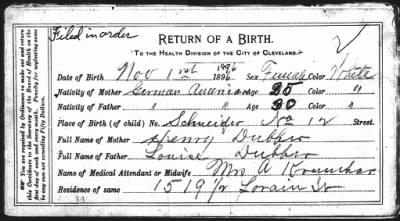 Filed in order
RETURN OF A BIRTH.
TO THE HEALTH DIVISION OF THE CITY OF CLEVELAND.
Date of Birth Nov 1 1896 1896. Sex Female Color White
Nativity of Mother German American Age 25 Color "
Nativity of Father " " Age 30 Color "
Place of Birth (of child) No. Schneider No 12 Street.
Full Name of Mother Henry Dubber
Full Name of Father Louise Dubber
Name of Medical Attendant or Midwife Mrs A
Residence of same 1519 1/2 Lorain St
You are required by Ordinance to make out and return
this Certificate to the Secretary of the Board of Health on the
first day of each and every month. Penalty for neglecting same
may be not exceeding Fifty Dollars.